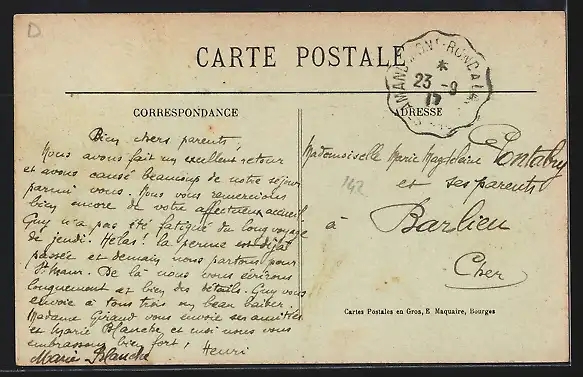 D
CARTE POSTALE
CORRESPONDANCE
Bien chers parents,
Nous avons fait un excellent retour
et avons causé beaucoup de notre séjour
parmi vous. Nous vous remercions
bien encore de votre affectueux accueil
Guy n'a pas été fatigué du long voyage
de jeudi. Hélas! la perme est déjà
passée et demain nous partons pour
St Maur. De là nous vous écrirons
longuement et bien des détails. Guy vous
envoie à tous trois un beau baiser.
Madame Giraud vous envoie ses amitiés
et Marie Blanche et moi nous vous
embrassons bien fort, Henri
Marie Blanche
23 -9
17
ADRESSE
Mademoiselle Marie Magdeleine
et ses parents
à
Barlieu
Cher
142
Cartes Postales en Gros, E. Maquaire, Bourges